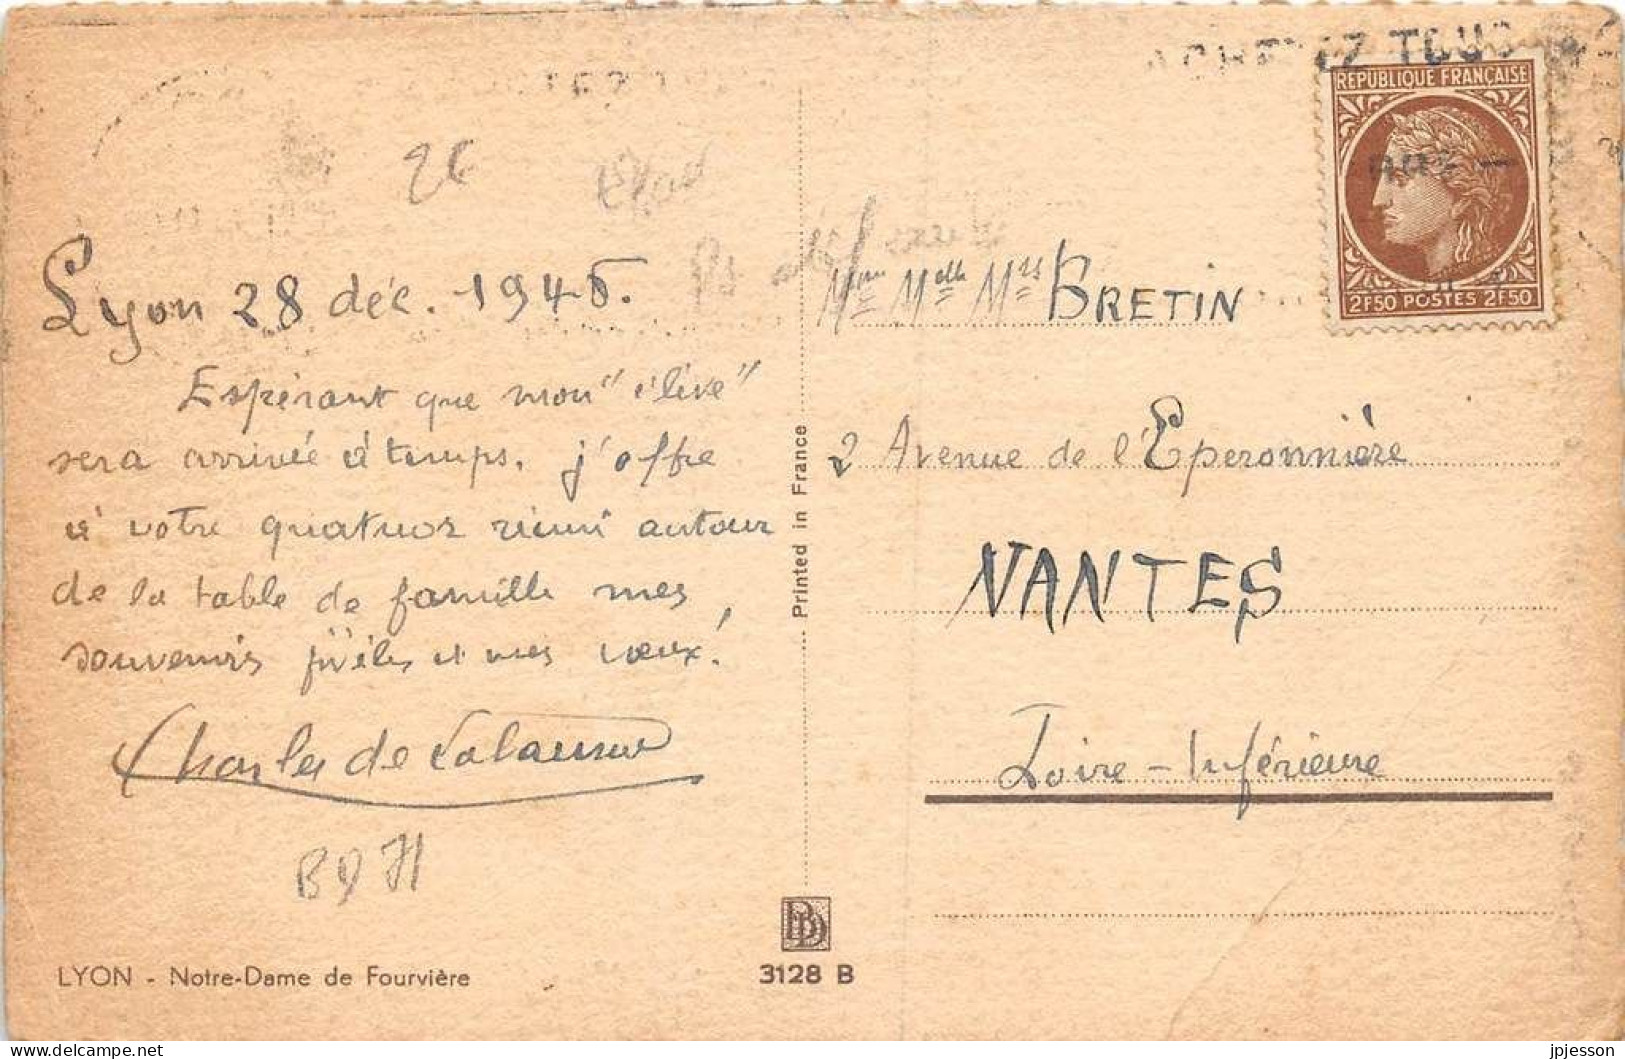 ACHETEZ TOUS
REPUBLIQUE FRANÇAISE
2F50 POSTES 2F50
26
Lyon 28 déc. 1945.
Espérant que mon "élève"
sera arrivée à temps, j'offre
à votre quatuor réuni autour
de la table de famille mes
souvenirs fidèles et mes vœux!
Charles de
B 9 71
LYON - Notre-Dame de Fourvière
Printed in France
BD
3128 B
Mme Melle Mrs BRETIN
2 Avenue de l'Eperonnière
NANTES
Loire-Inférieure
jpjesson